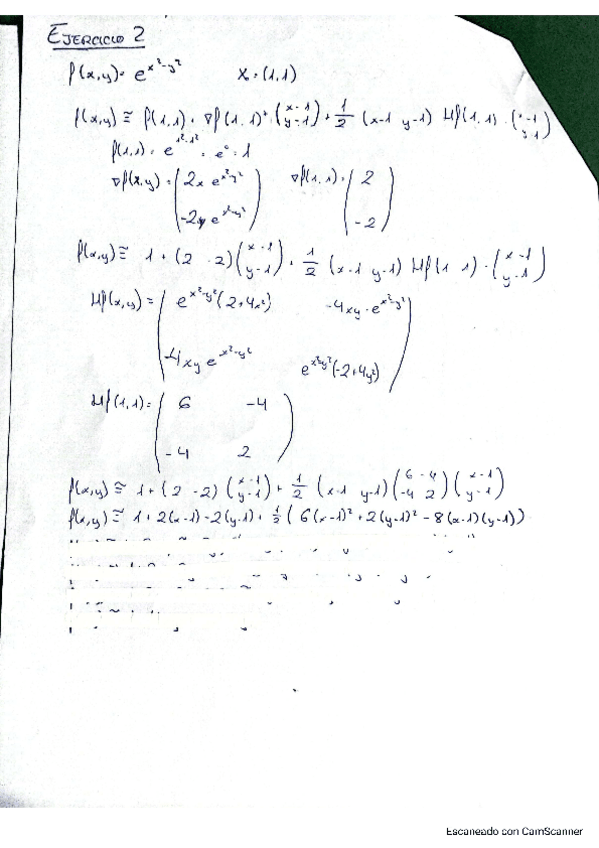 EJERCICIO 2
f(x,y) = e^{x²-y²} X = (1,1)
f(x,y) ≅ f(1,1) + ∇f(1,1)ᵗ · (x-1 / y-1) + 1/2 (x-1 y-1) Hf(1,1) · (x-1 / y-1)
f(1,1) = e^{1²-1²} = e⁰ = 1
∇f(x,y) = (2x e^{x²-y²} / -2y e^{x²-y²}) ∇f(1,1) = (2 / -2)
f(x,y) ≅ 1 + (2 -2) (x-1 / y-1) + 1/2 (x-1 y-1) Hf(1 1) · (x-1 / y-1)
Hf(x,y) = (e^{x²-y²}(2+4x²) -4xy·e^{x²-y²} / -4xy e^{x²-y²} e^{x²-y²}(-2+4y²))
Hf(1,1) = (6 -4 / -4 2)
f(x,y) ≅ 1 + (2 -2) (x-1 / y-1) + 1/2 (x-1 y-1) (6 -4 / -4 2) (x-1 / y-1)
f(x,y) ≅ 1 + 2(x-1) - 2(y-1) + 1/2 (6(x-1)² + 2(y-1)² - 8(x-1)(y-1))
Escaneado con CamScanner